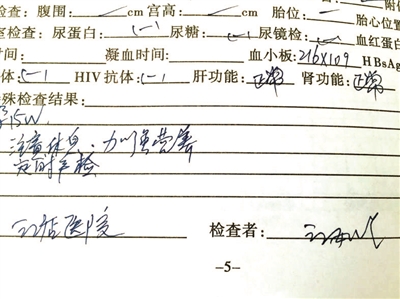 检查: 腹围: cm 宫高: cm 胎位: 胎心位置
室检查: 尿蛋白: (-) 尿糖: (-) 尿镜检: (-) 血红蛋白
时间: 凝血时间: 血小板: 216×109 HBsAg
体: (-) HIV抗体: (-) 肝功能: 正常 肾功能: 正常
殊检查结果:
孕15W
注意休息、加强营养
定时产检
医院 检查者:
-5-